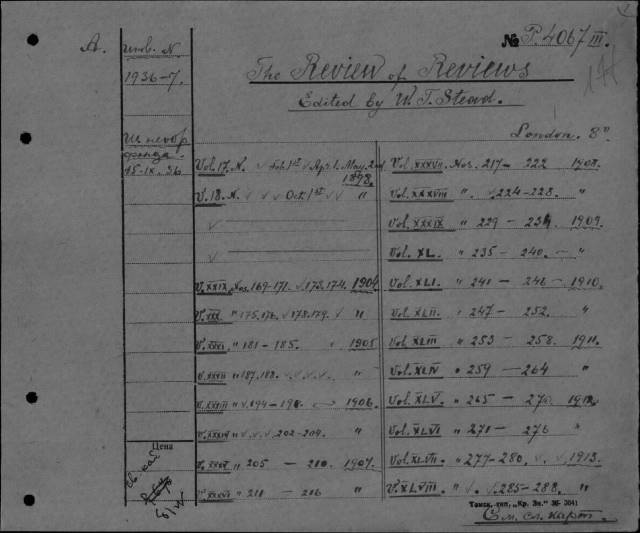 № P. 4067 III.
A.
инв. N
1936-7.
The Review of Reviews
Edited by W. T. Stead.
London. 8º
15-IX. 36
Vol. 17. N. v Feb. 1st v Apr. 1. May. 2nd 1898.
V. 18. N. v v v Oct. 1st v v "
v
v
V. XXIX. Nos. 169-171. v 173, 174. 1904
V. XXX. " 175, 176. v 178, 179. v "
V. XXXI. " 181 - 185. " 1905
V. XXXII " 187, 188. v. v. v. v. "
V. XXXIII " v. 194 - 198. 1906.
V. XXXIV " v. v. v. 202-204. "
V. XXXV " 205 — 210. 1907.
V. XXXVI " 211 — 216 "
Vol. XXXVII. Nos. 217 - 222 1908.
Vol. XXXVIII ". v. 224-228. "
Vol. XXXIX " 229 - 234 1909.
Vol. XL. " 235 - 240. - "
Vol. XLI. " 241 - 246 - 1910.
Vol. XLII. " 247 - 252. "
Vol. XLIII " 253 - 258. 1911.
Vol. XLIV " 259 - 264 "
Vol. XLV. " 265 - 270. 1912.
Vol. XLVI " 271 - 276 "
Vol. XLVII. " 277-280. v. v. 1913.
V. XLVIII. " v. v. 285-288. "
Цена
Такск. тип. „Кр. Зн." № 3041
См. сл. карт.